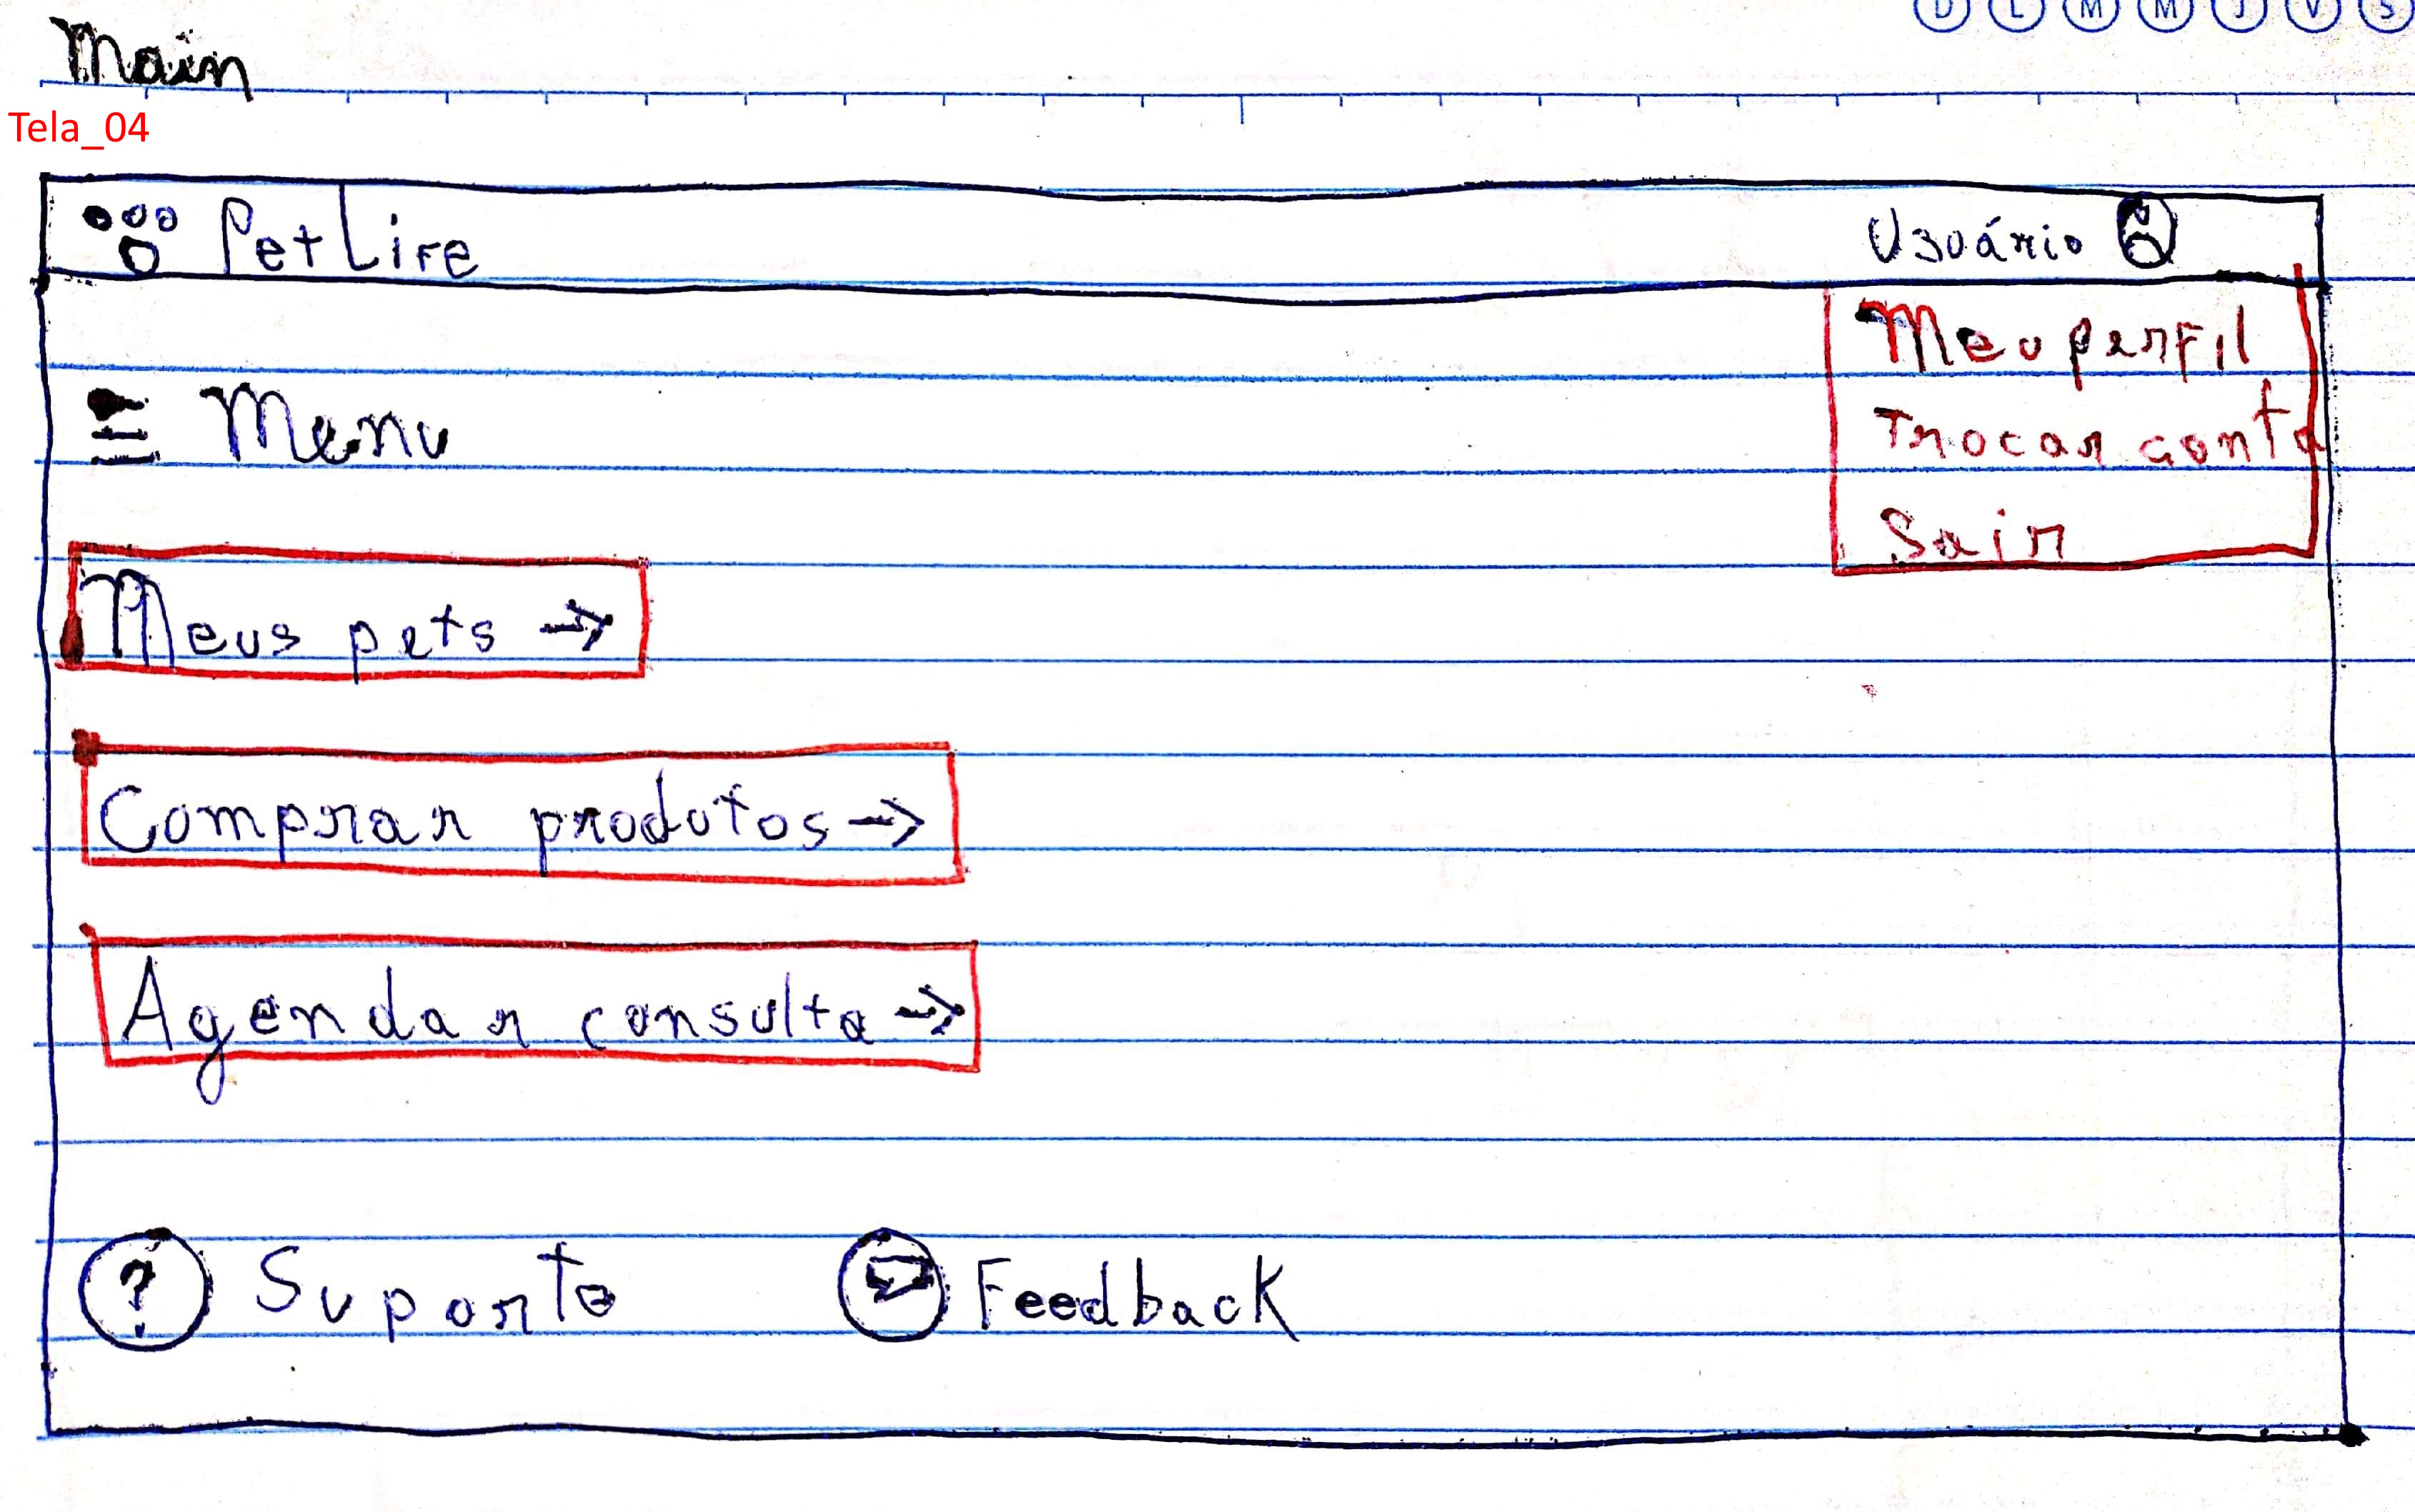 D L M M J V S
Main
Tela_04
PetLife
Usuário
Meu perfil
Trocar conta
Menu
Sair
Meus pets →
Comprar produtos →
Agendar consulta →
? Suporte
Feedback